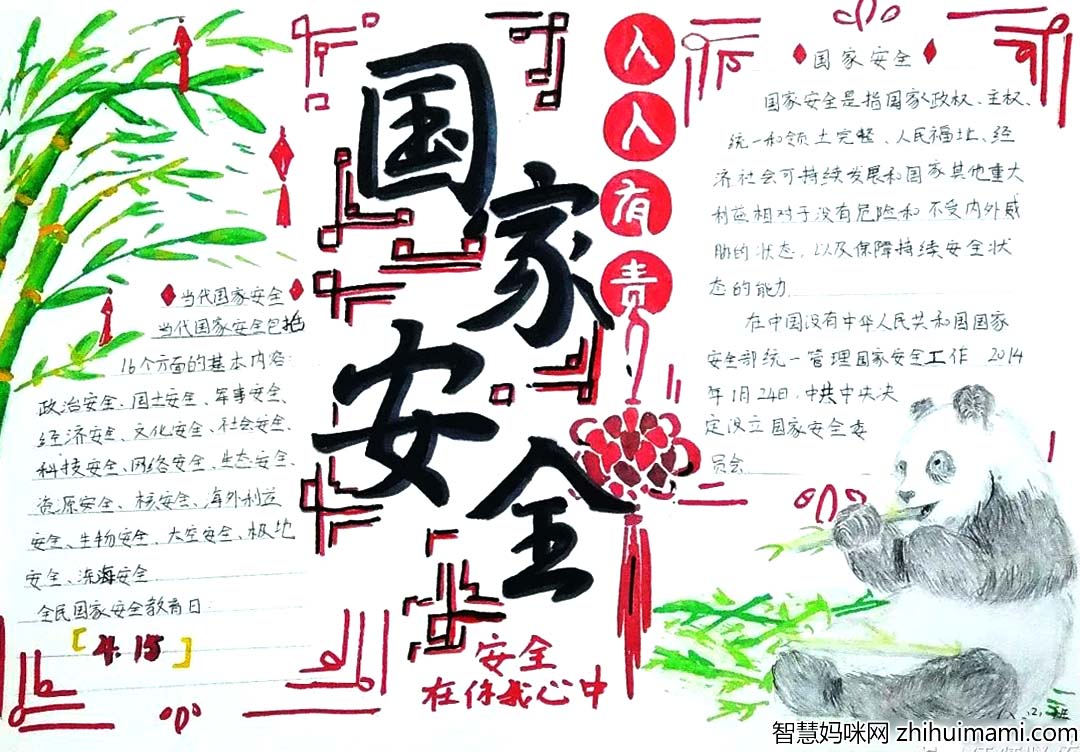 国家安全
人人有责
当代国家安全
当代国家安全包括
16个方面的基本内容:
政治安全、国土安全、军事安全、
经济安全、文化安全、社会安全、
科技安全、网络安全、生态安全、
资源安全、核安全、海外利益
安全、生物安全、太空安全、极地
安全、深海安全
全民国家安全教育日:
[4.15]
安全
在你我心中
国家安全
国家安全是指国家政权、主权、
统一和领土完整、人民福祉、经
济社会可持续发展和国家其他重大
利益相对于没有危险和不受内外威
胁的状态,以及保障持续安全状
态的能力
在中国没有中华人民共和国国家
安全部统一管理国家安全工作 2014
年1月24日,中共中央决
定设立国家安全委
员会
班
智慧妈咪网 zhihuimami.com